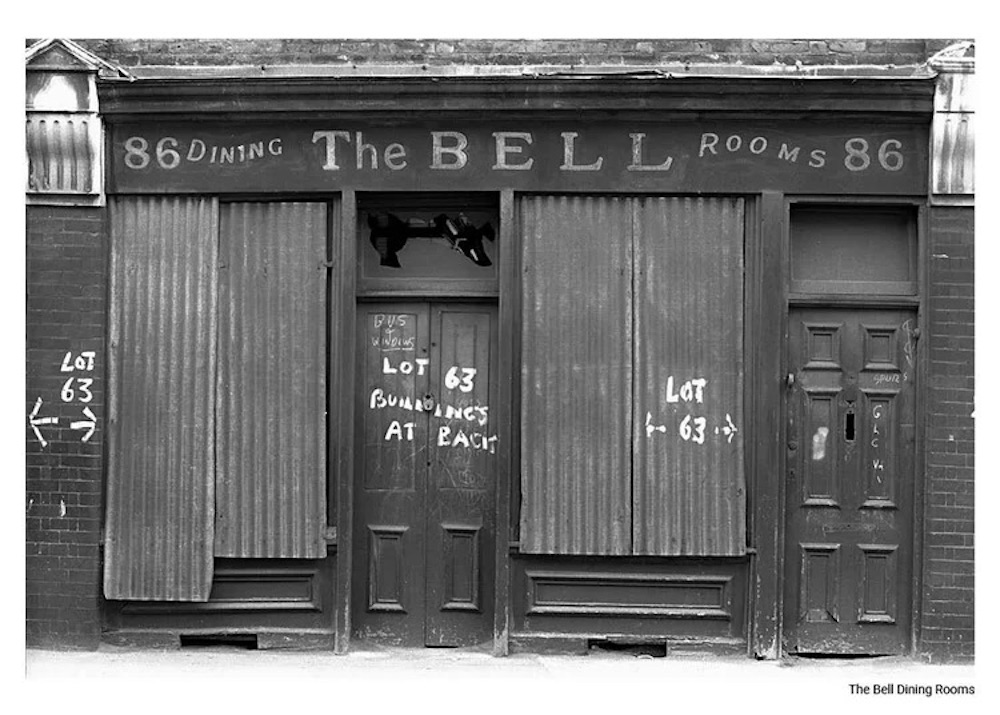 86 DINING The BELL ROOMS 86
LOT
63
BUS
&
WINDOWS
LOT 63
BUILDINGS
AT BACK
LOT
63
GLC
The Bell Dining Rooms